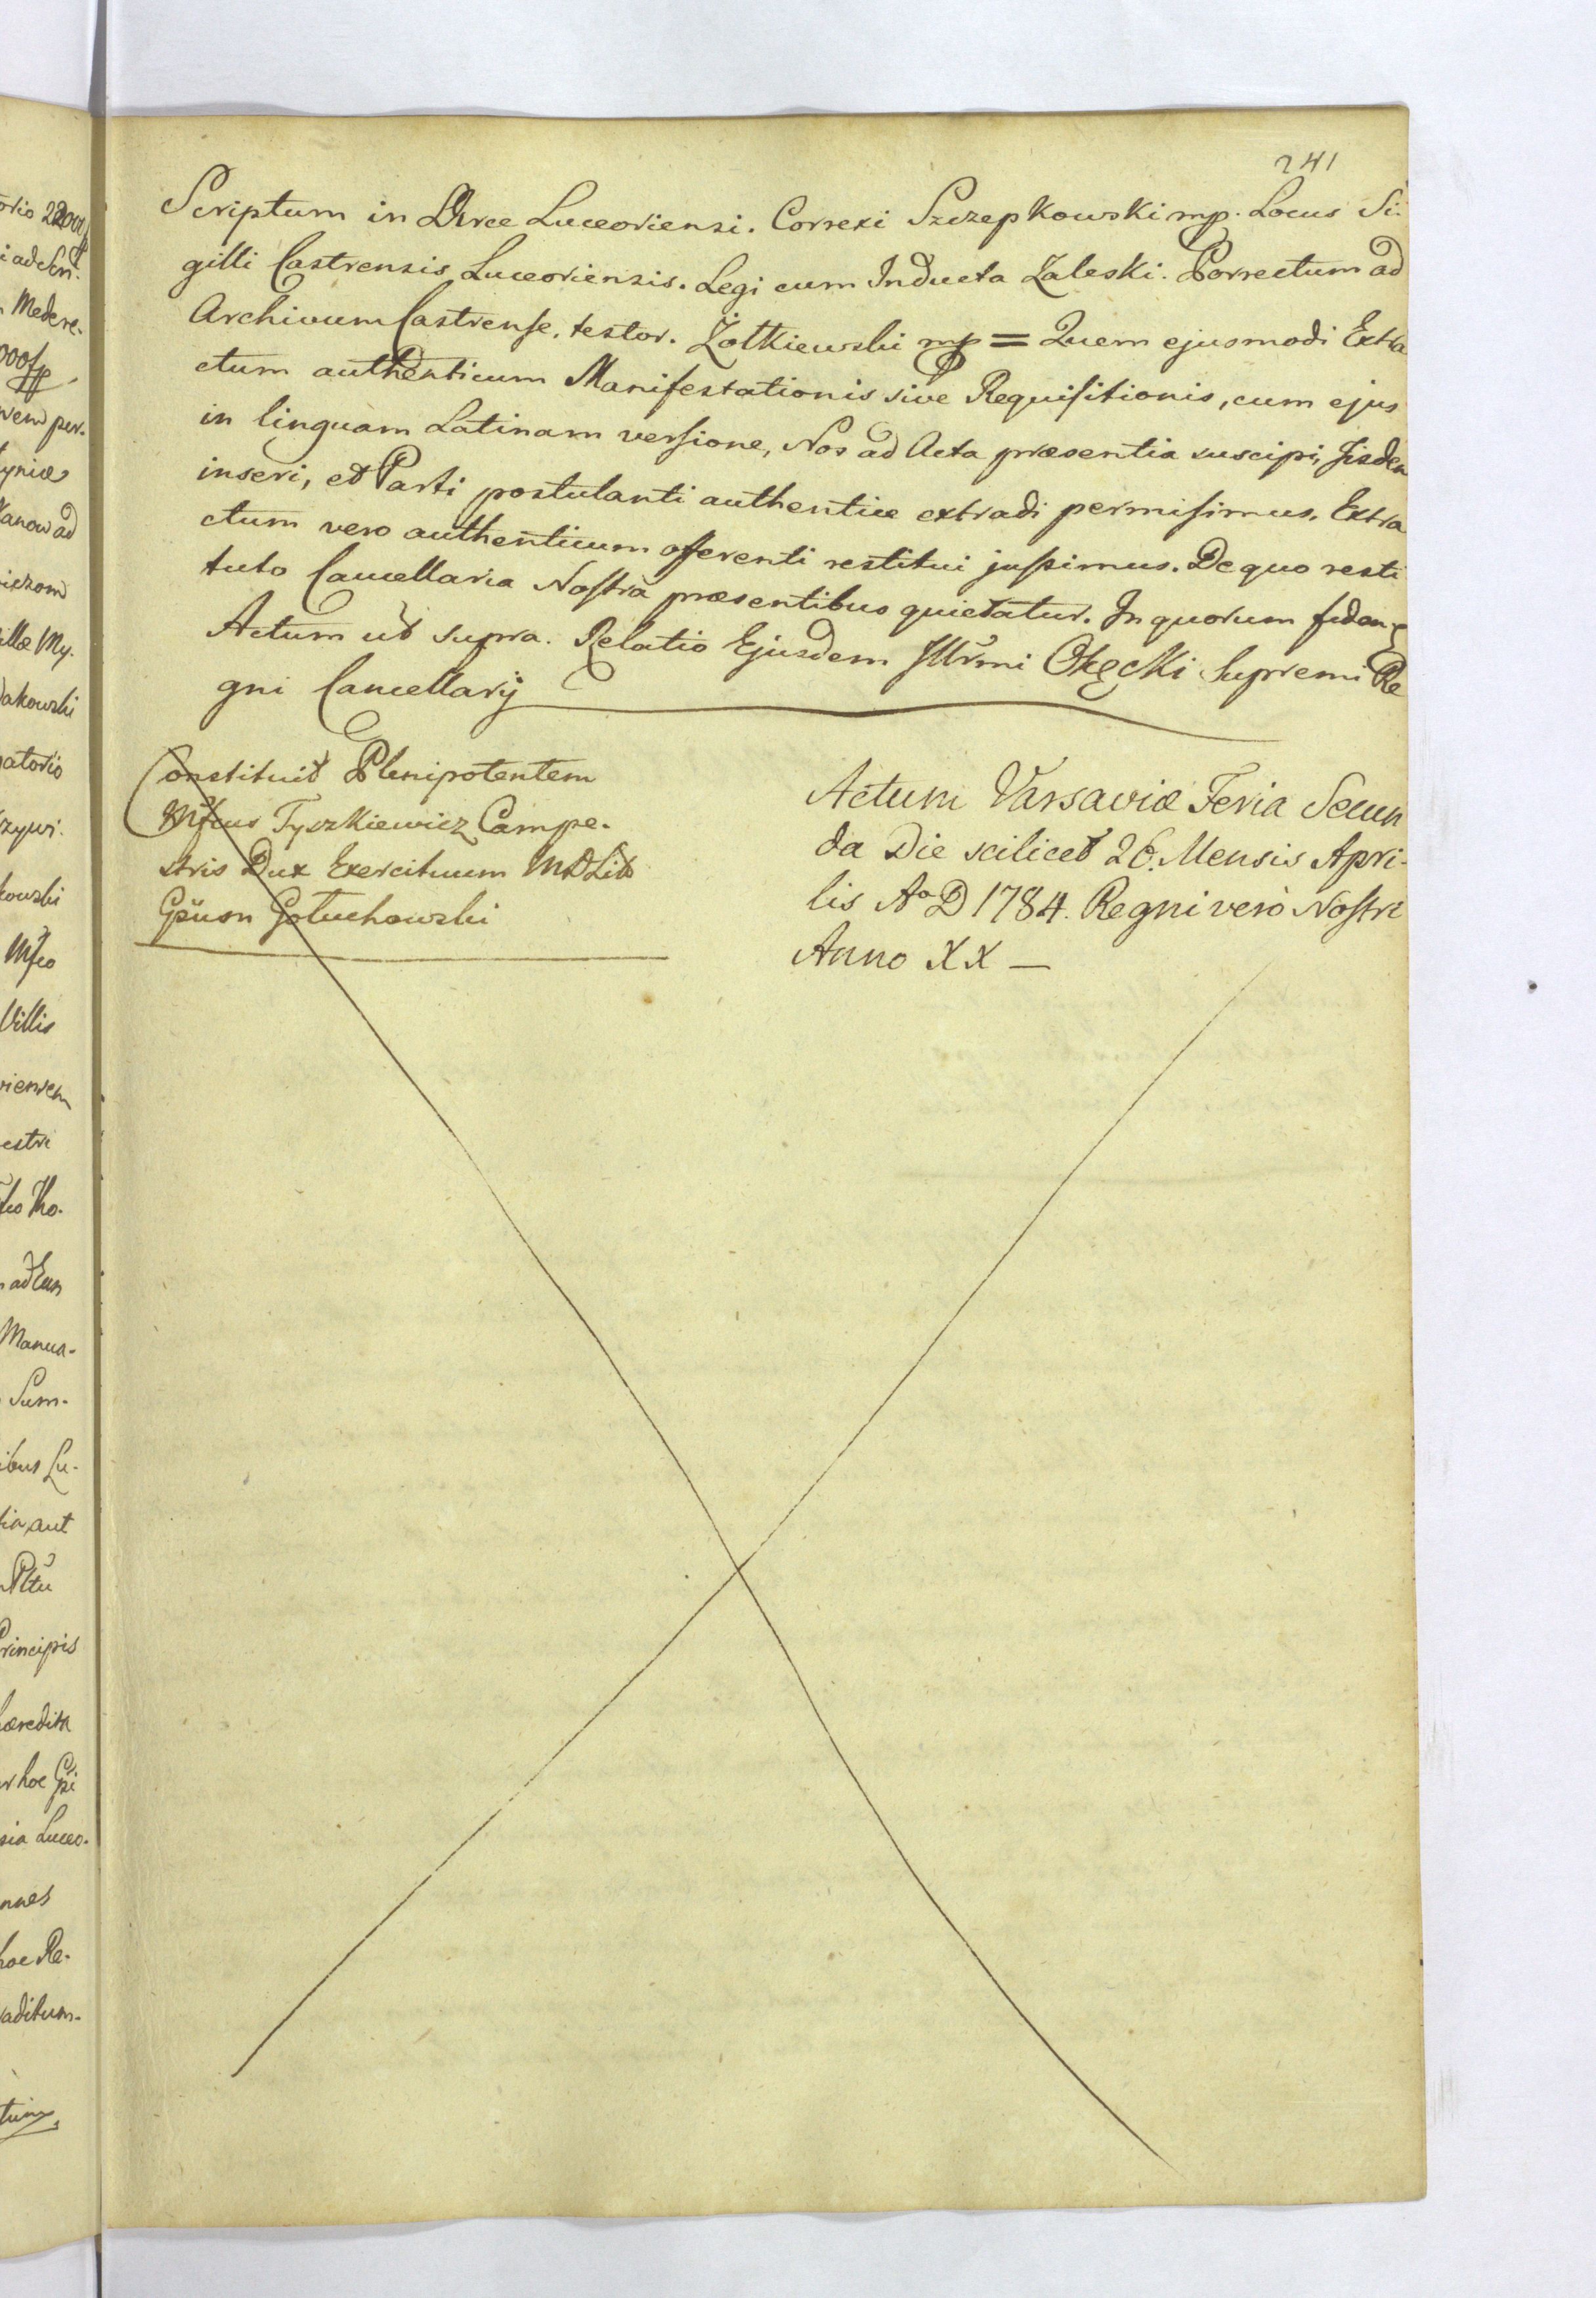 241
Scriptum in Arce Luceoriensi. Correxi Szczepkowski mp. Locus Si-
gilli Castrensis Luceoriensis. Legi cum Inducta Zaleski. Porrectum ad
Archivum Castrense, testor. Żołkiewski mp = Quem ejusmodi Extra
ctum authenticum Manifestationis sive Requisitionis, cum ejus
in linguam Latinam versione, Nos ad Acta præsentia suscipi, Iisdem
inseri, et Parti postulanti authentice extradi permisimus. Extra
ctum vero authenticum offerenti restitui jussimus. De quo resti
tuto Cancellaria Nostra præsentibus quietatur. In quorum fidem
Actum ut supra. Relatio Ejusdem Illrmi Okęcki Supremi Re
gni Cancellarij
Constituit Plenipotentem
Mfcus Tyszkiewicz Campe-
stris Dux Exercituum MDLit
Gsum Gołuchowski
Actum Varsaviæ Feria Secun
da Die scilicet 26. Mensis Apri-
lis Ao D 1784. Regni verò Nostri
Anno XX —
orio
i ad
Medere-
000
per-
yniæ
anow ad
My-
akowski
atorio
zywi-
kowski
Mfco
Villis
riensem
estri
Tho-
ad Eun
Manua-
Sum-
ibus Lu-
aut
Principis
hæredita
hoc
sia Luceo-
hoc Re-
aditum-